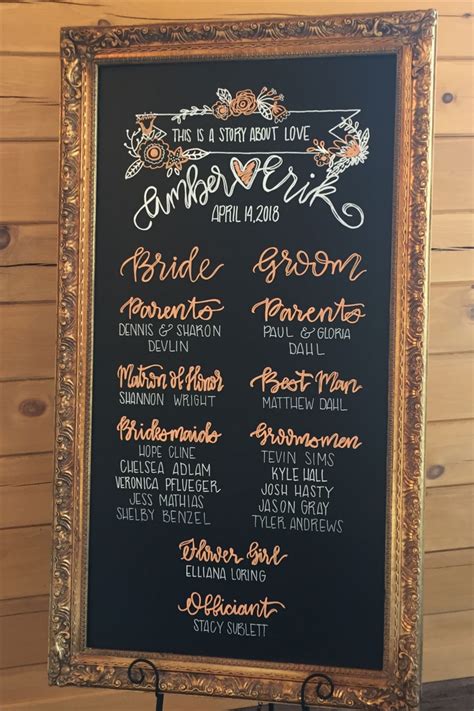 THIS IS A STORY ABOUT LOVE
Amber Erik
APRIL 14, 2018
Bride
Parents
DENNIS & SHARON
DEVLIN
Matron of Honor
SHANNON WRIGHT
Bridesmaids
HOPE CLINE
CHELSEA ADLAM
VERONICA PFLUEGER
JESS MATHIAS
SHELBY BENZEL
Groom
Parents
PAUL & GLORIA
DAHL
Best Man
MATTHEW DAHL
Groomsmen
TEVIN SIMS
KYLE HALL
JOSH HASTY
JASON GRAY
TYLER ANDREWS
Flower Girl
ELLIANA LORING
Officiant
STACY SUBLETT